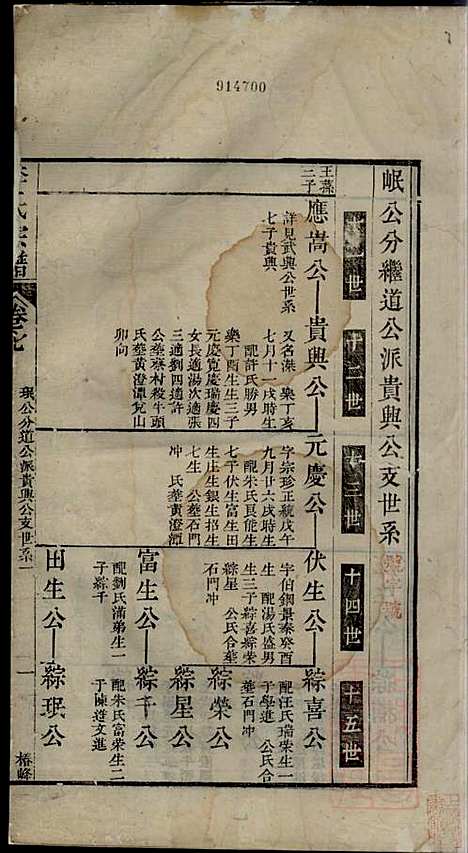 914700
岷公分繼道公派貴興公支世系
世
十二世
十三世
十四世
十五世
王蓀
三子
應嵩公
詳見武興公世系
七子貴興
貴興公
又名溁 樂丁亥
七月十一戌時生
配許氏勝男
樂丁酉生生三子
元慶寬慶瑞慶四
女長適湯次適張
三適劉四適許
公葬寮村殺牛頭
氏葬黃澄潭兌山
卯向
元慶公
字宗珍正統戊午
九月廿六戌時生
配朱氏艮能生
七子伏生富生田
生庄生銀生招生
七生 公葬石門
冲 氏葬黃澄潭
伏生公
字伯鋼景泰癸酉
生 配湯氏盛男
生三子綜喜綜榮
綜星 公氏合葬
石門冲
綜喜公
配汪氏瑞榮生一
子學進 公氏合
葬石門冲
綜榮公
綜星公
富生公
配劉氏滿弟生一
子綜千
綜千公
配朱氏富荣生二
子陳道文進
田生公
綜珉公
氏宗譜
卷七
珉公分道公派貴興公支世系一
一
椿峰